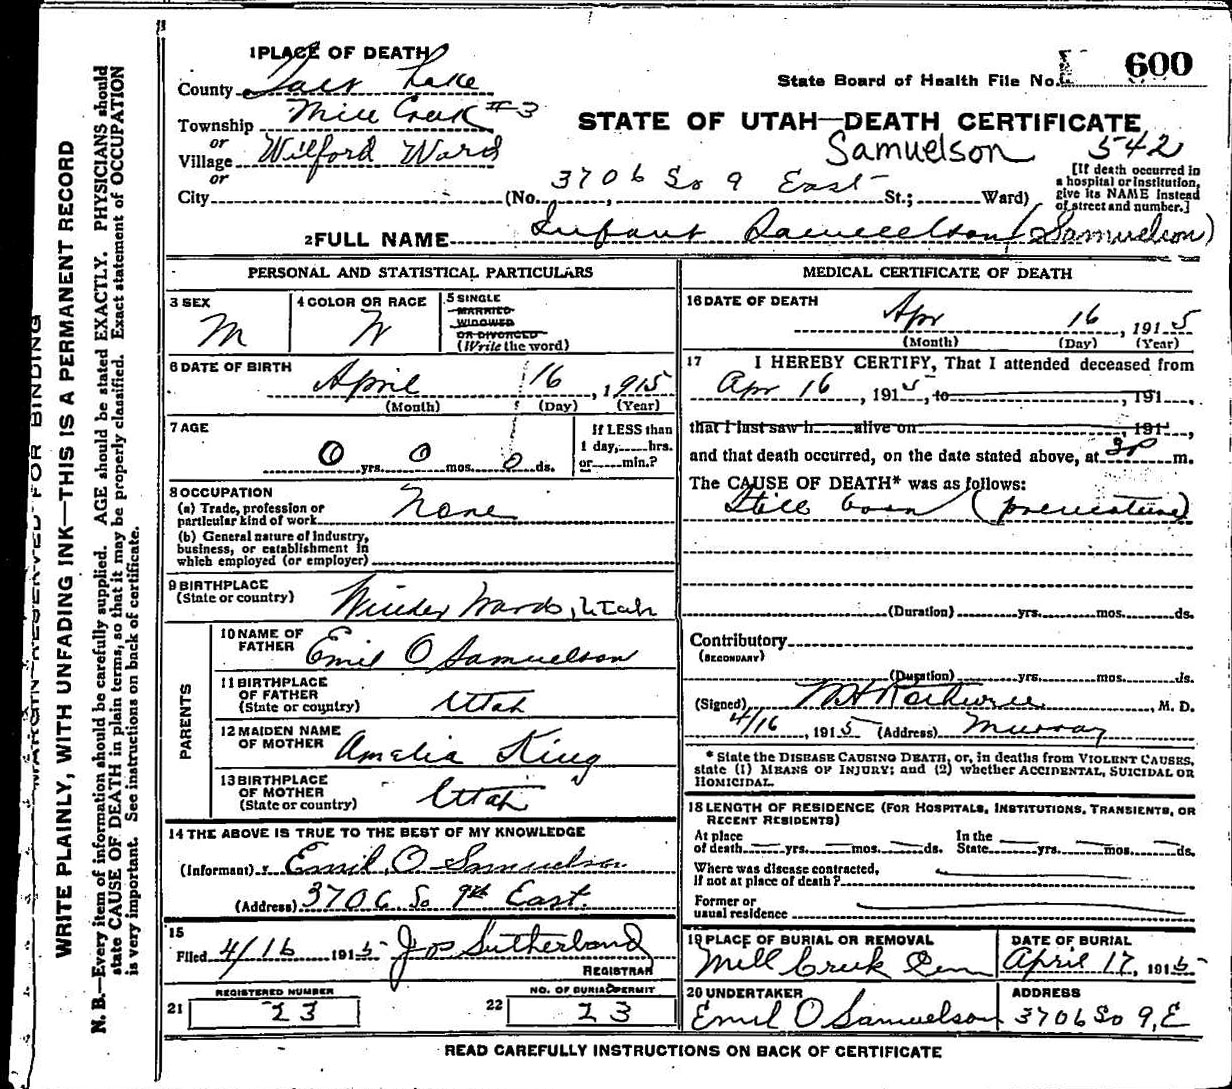 1 PLACE OF DEATH
County Salt Lake
Township Mill Creek #3
or
Village Wilford Ward
or
City
State Board of Health File No. 600
STATE OF UTAH—DEATH CERTIFICATE
Samuelson 542
(No. 3706 So 9 East St.; Ward)
[If death occurred in
a hospital or institution,
give its NAME instead
of street and number.]
2 FULL NAME Infant (Samuelson)
PERSONAL AND STATISTICAL PARTICULARS
3 SEX
M
4 COLOR OR RACE
W
5 SINGLE
MARRIED
WIDOWED
OR DIVORCED
(Write the word)
6 DATE OF BIRTH
April 16, 1915
(Month) (Day) (Year)
7 AGE
0 yrs. 0 mos. 0 ds.
If LESS than
1 day, hrs.
or min.?
8 OCCUPATION
(a) Trade, profession or
particular kind of work None
(b) General nature of industry,
business, or establishment in
which employed (or employer)
9 BIRTHPLACE
(State or country) Winder Ward, Utah
PARENTS
10 NAME OF
FATHER Emil O Samuelson
11 BIRTHPLACE
OF FATHER
(State or country) Utah
12 MAIDEN NAME
OF MOTHER Amelia King
13 BIRTHPLACE
OF MOTHER
(State or country) Utah
14 THE ABOVE IS TRUE TO THE BEST OF MY KNOWLEDGE
(Informant) Emil O Samuelson
(Address) 3706 So 9th East.
15
Filed 4/16 1915 Jos Sutherland
REGISTRAR
21 REGISTERED NUMBER
23
22 NO. OF BURIAL PERMIT
23
MEDICAL CERTIFICATE OF DEATH
16 DATE OF DEATH
Apr 16, 1915
(Month) (Day) (Year)
17 I HEREBY CERTIFY, That I attended deceased from
Apr 16, 1915, to , 191 ,
that I last saw h alive on , 191 ,
and that death occurred, on the date stated above, at 3P m.
The CAUSE OF DEATH* was as follows:
Still born (premature)
(Duration) yrs. mos. ds.
Contributory
(SECONDARY)
(Duration) yrs. mos. ds.
(Signed) , M. D.
4/16, 1915 (Address) Murray
* State the DISEASE CAUSING DEATH, or, in deaths from VIOLENT CAUSES,
state (1) MEANS OF INJURY; and (2) whether ACCIDENTAL, SUICIDAL OR
HOMICIDAL.
18 LENGTH OF RESIDENCE (FOR HOSPITALS, INSTITUTIONS, TRANSIENTS, OR
RECENT RESIDENTS)
At place
of death yrs. mos. ds.
In the
State yrs. mos. ds.
Where was disease contracted,
if not at place of death?
Former or
usual residence
19 PLACE OF BURIAL OR REMOVAL
Mill Creek Cem
DATE OF BURIAL
April 17, 1915
20 UNDERTAKER
Emil O Samuelson
ADDRESS
3706 So 9, E
READ CAREFULLY INSTRUCTIONS ON BACK OF CERTIFICATE
MARGIN RESERVED FOR BINDING
WRITE PLAINLY, WITH UNFADING INK—THIS IS A PERMANENT RECORD
N. B.—Every item of information should be carefully supplied. AGE should be stated EXACTLY. PHYSICIANS should
state CAUSE OF DEATH in plain terms, so that it may be properly classified. Exact statement of OCCUPATION
is very important. See instructions on back of certificate.